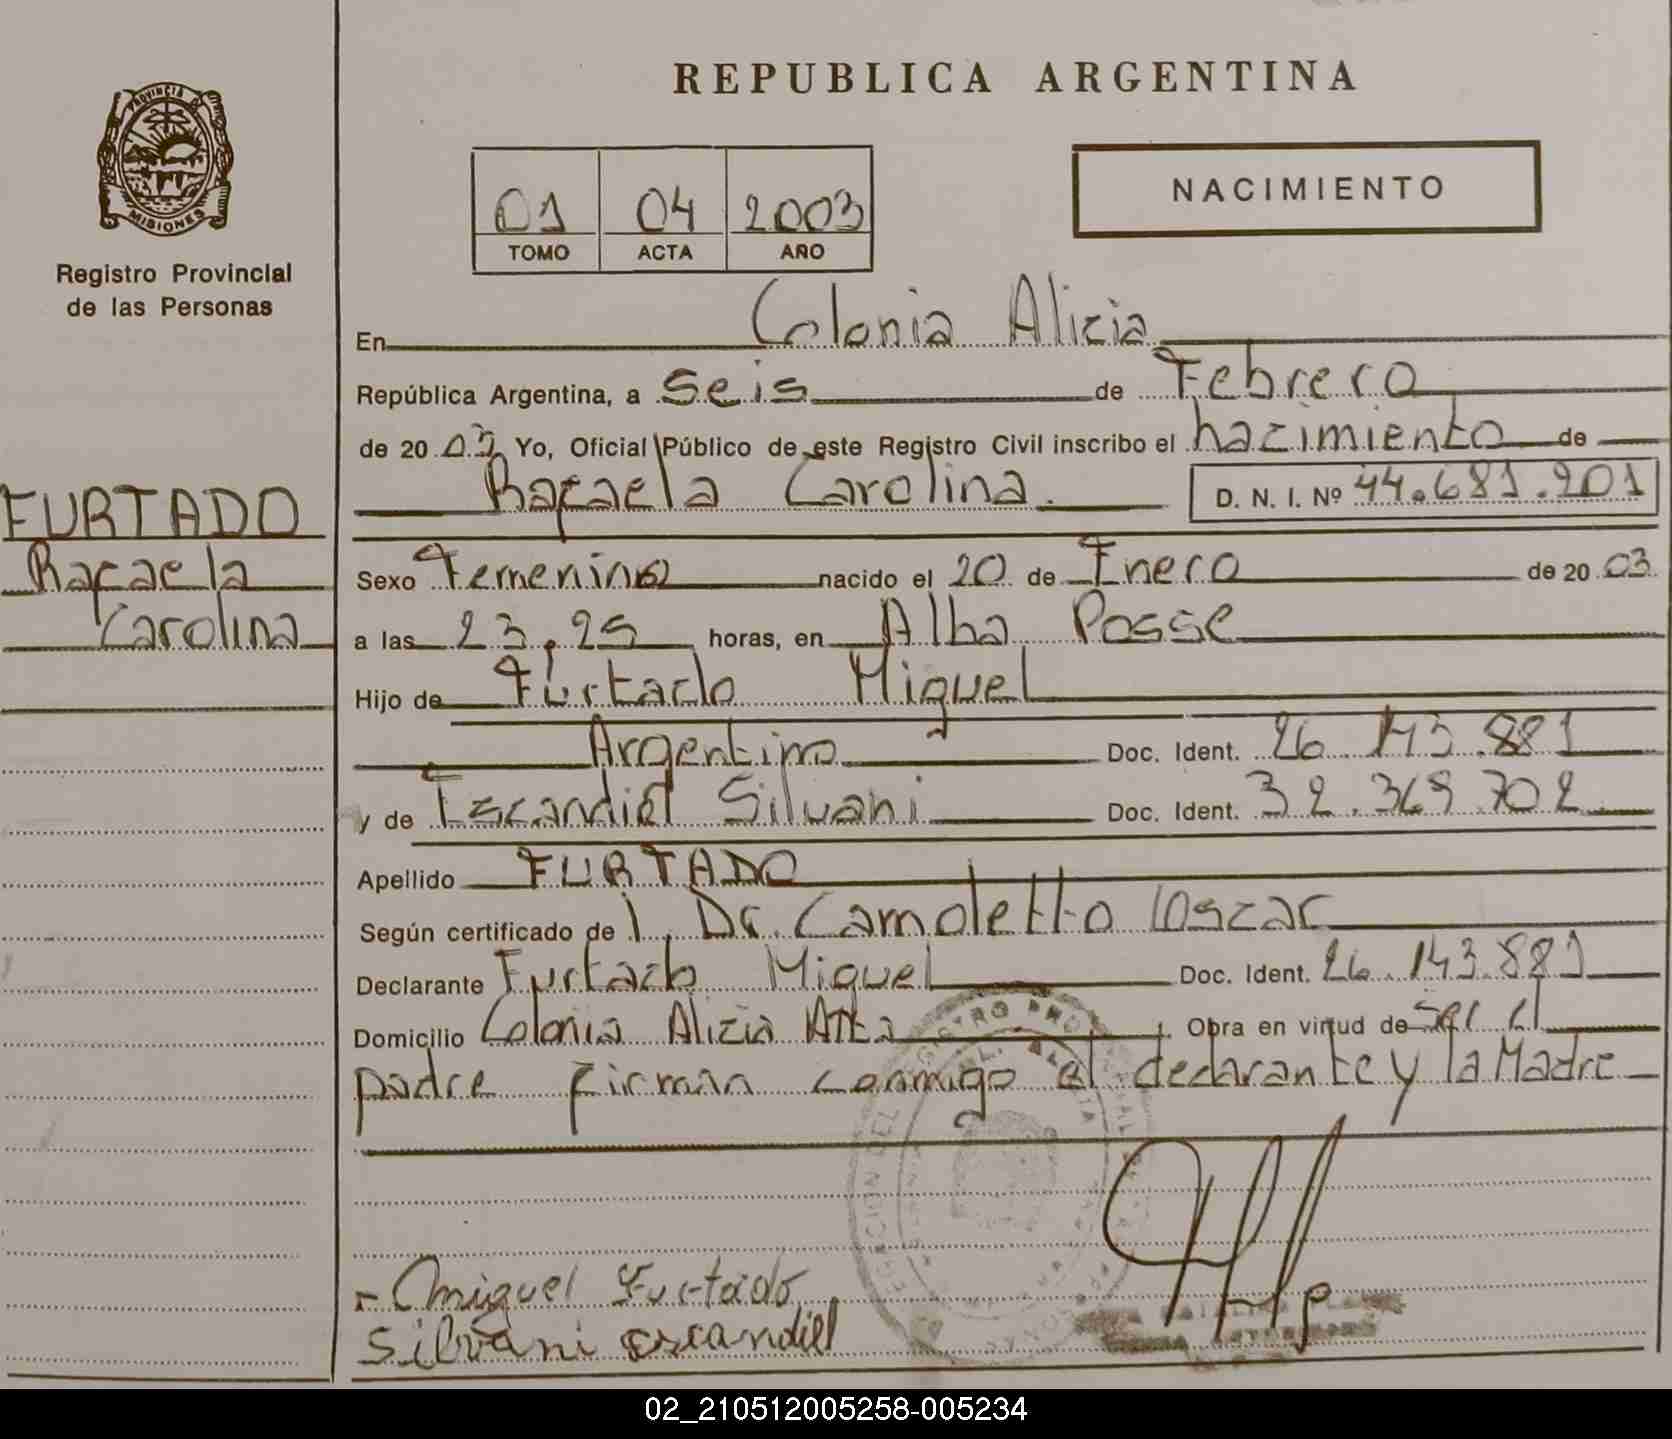 REPUBLICA ARGENTINA
PROVINCIA DE
MISIONES
Registro Provincial
de las Personas
01 04 2003
TOMO ACTA AÑO
NACIMIENTO
En Colonia Alicia
República Argentina, a Seis de Febrero
de 20 03 Yo, Oficial Público de este Registro Civil inscribo el nacimiento de
Rafaela Carolina. D. N. I. Nº 44.681.201
FURTADO
Rafaela
Carolina
Sexo Femenino nacido el 20 de Enero de 20 03
a las 23,25 horas, en Alba Posse
Hijo de Furtado Miguel
Argentino Doc. Ident. 26 143.881
y de Escandiel Silvani Doc. Ident. 32.369 702
Apellido FURTADO
Según certificado de Dr. Camoletto Oscar
Declarante Furtado Miguel Doc. Ident. 26.143.881
Domicilio Colonia Alicia Alta Obra en virtud de Ser el
padre firman conmigo el declarante y la Madre
Miguel Furtado
Silvani escandiel
02_210512005258-005234